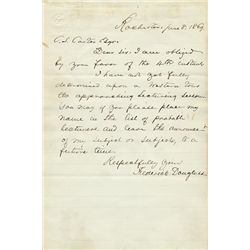 Rochester, June 8. 1869
Esqr.
Dear Sir: I am obliged
by your favor of the 4th instant.
I have not yet fully
determined upon a Western tour
the approaching lecturing season.
You may if you please place my
name in the list of probable
lecturers and leave the announcement
of my subject or subjects, to a
future time.
Respectfully Yours
Frederick Douglass